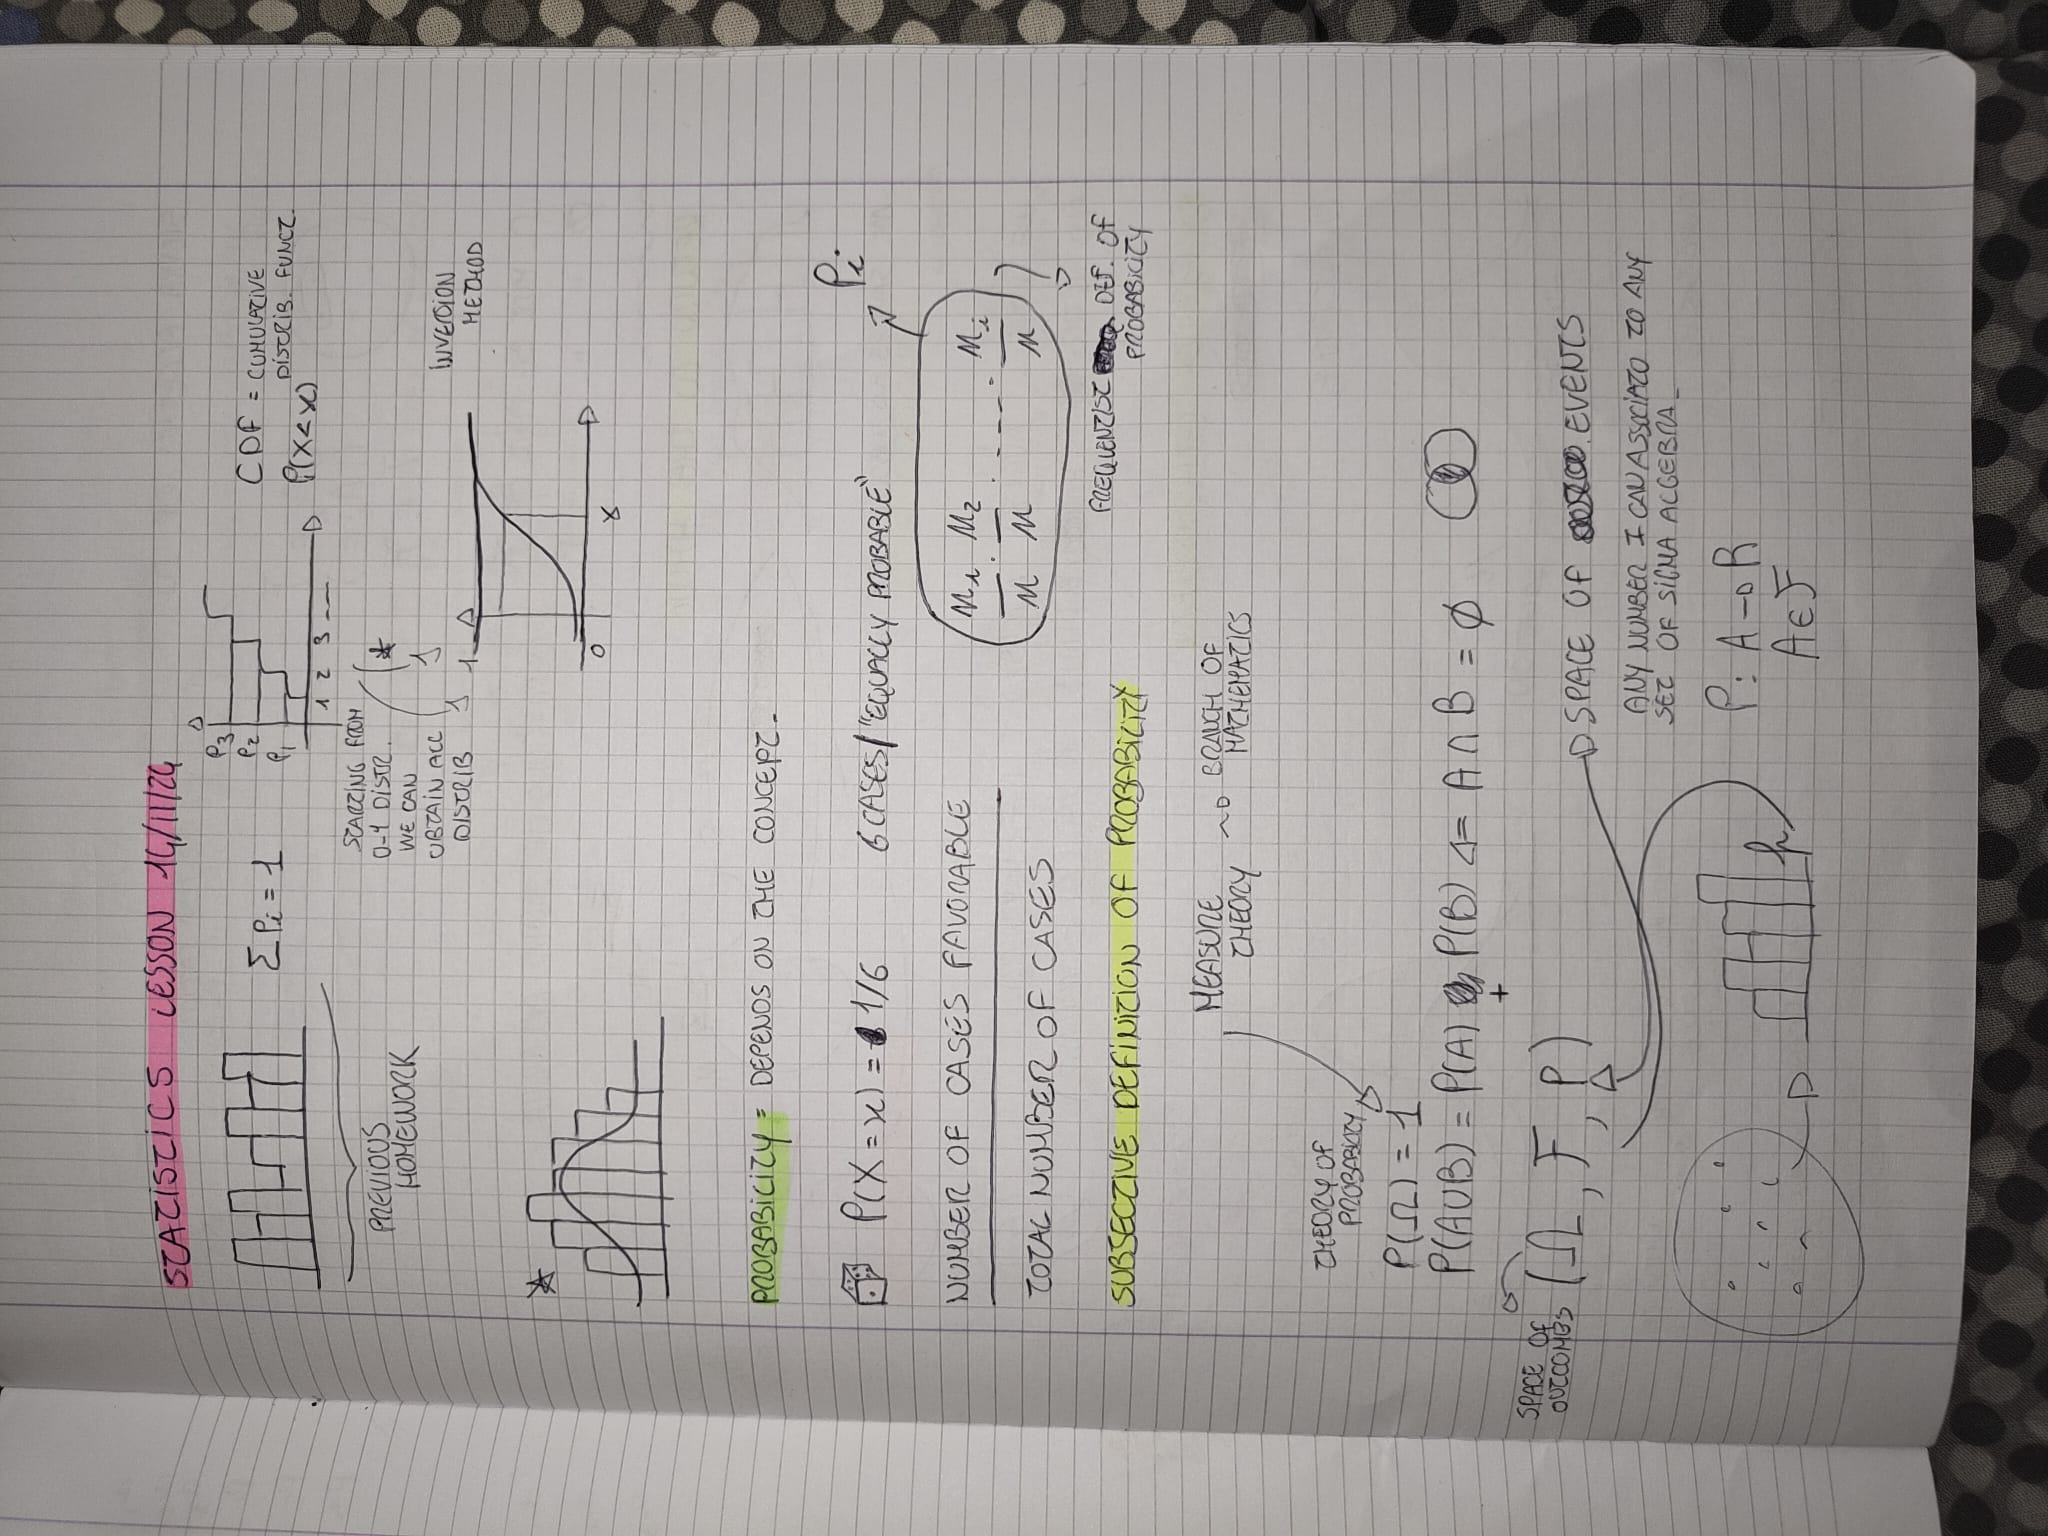 STATISTICS LESSON 14/11/24
Σ Pi = 1
P3
P2
P1
1 2 3 ---
CDF = CUMULATIVE
DISTRIB. FUNCT.
P(X<x)
PREVIOUS
HOMEWORK
STARTING FROM
0-1 DISTR.
WE CAN
OBTAIN ALL
DISTRIB
INVERSION
METHOD
1
0
x
PROBABILITY = DEPENDS ON THE CONCEPT.
P(X=x) = 1/6
6 CASES / "EQUALLY PROBABLE"
Pi
NUMBER OF CASES FAVORABLE
TOTAL NUMBER OF CASES
n1 n2 ---- ni
n n n
FREQUENTIST DEF. OF
PROBABILITY
SUBJECTIVE DEFINITION OF PROBABILITY
MEASURE
THEORY
BRANCH OF
MATHEMATICS
THEORY OF
PROBABILITY
P(Ω) = 1
P(A∪B) = P(A) + P(B) ⇐ A ∩ B = ∅
SPACE OF
OUTCOMES
(Ω, F, P)
SPACE OF EVENTS
ANY NUMBER I CAN ASSOCIATO TO ANY
SET OF SIGMA ALGEBRA
P: A → R
A ∈ F